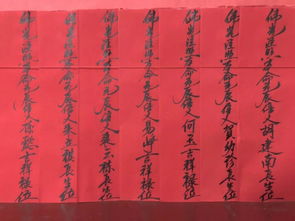 佛光注照本命元辰信人胡建南長生祿位
佛光注照本命元辰信人賀幼珍長生祿位
佛光注照本命元辰信人何玉吉祥祿位
佛光注照本命元辰信人易山吉祥祿位
佛光注照本命元辰信人長生祿位
佛光注照本命元辰信人朱五棋長生祿位
佛光注照本命元辰信人徐懿吉祥祿位